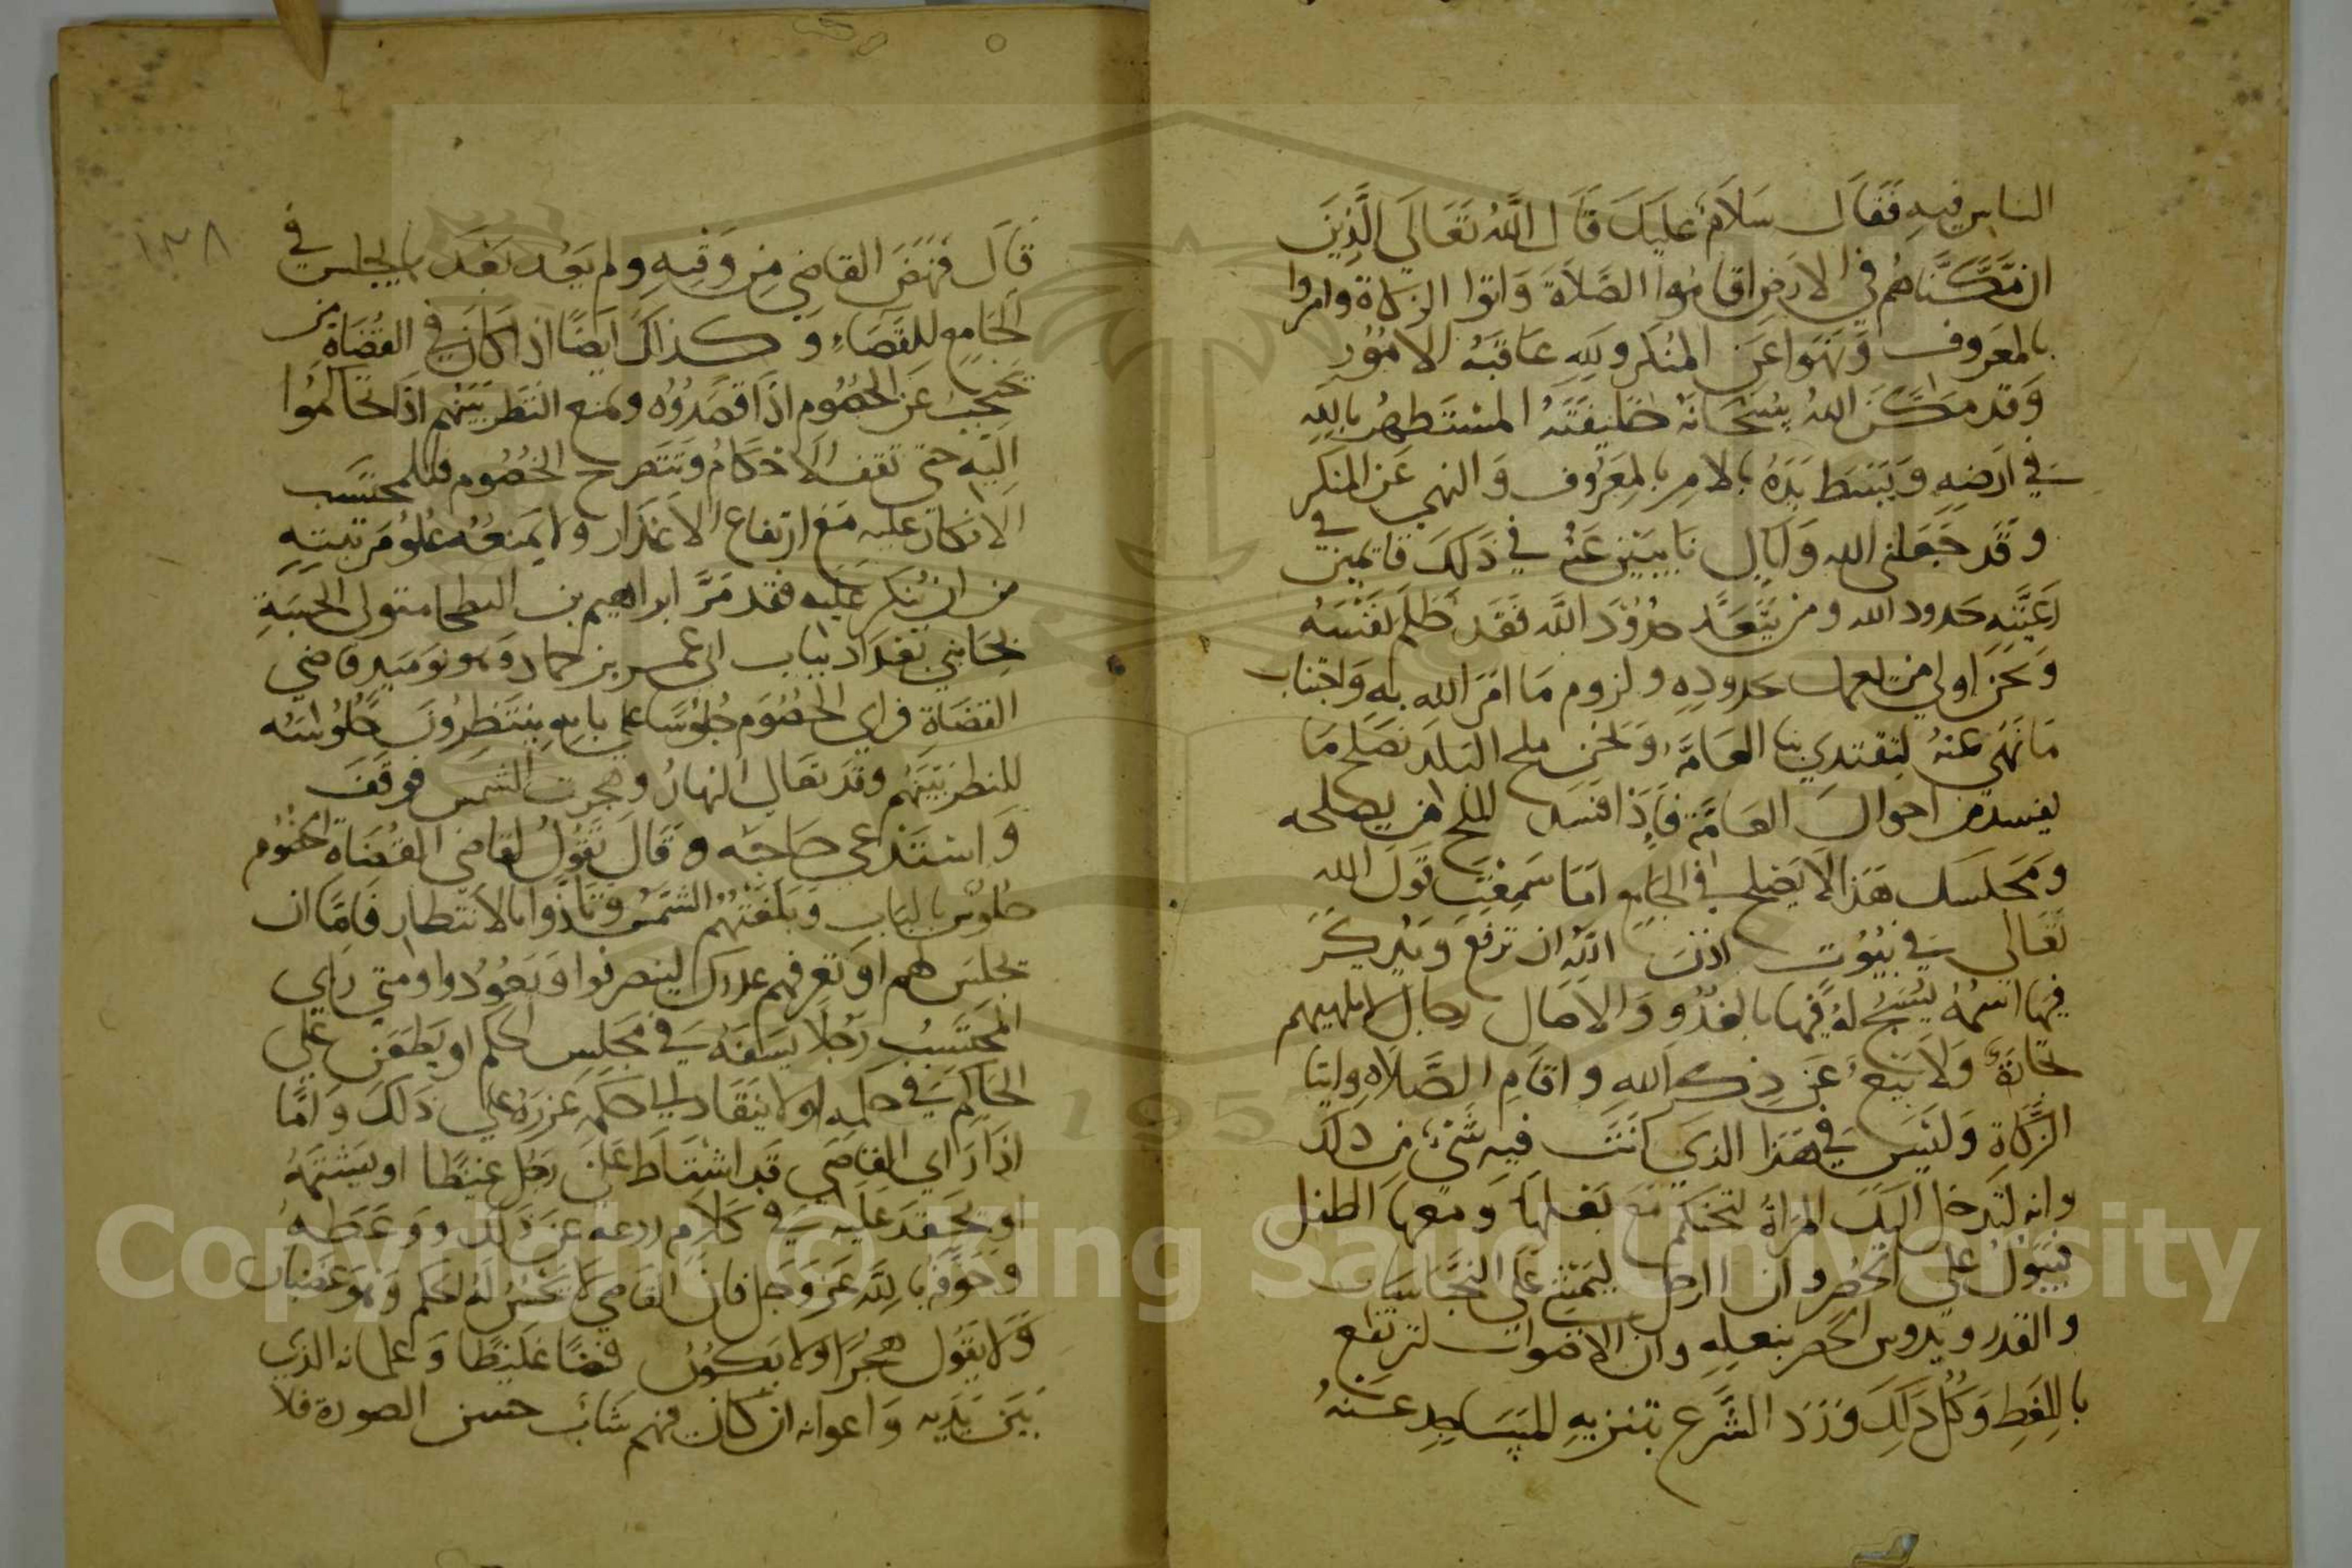 الناس فيه فقال سَلَامٌ عليك قَالَ اللَّهُ تَعَالَى الَّذِينَ
ان مَّكَّنَّاهُم في الارض اقاموا الصَّلَاةَ وَاتوا الزكاة وامروا
بالمعروف وَنَهَوا عَن المنكر ولِلَّهِ عَاقبَةُ الامُورِ
وَقَد مكَّنَ اللهُ سُبْحَانَهُ خليفَتَهُ المستظهر بالله
في ارضه وبَسَط يَدَهُ بالامر بالمعروف وَالنهي عَن المنكر
وقَد جَعَلنى الله واياك نايبين عَنْهُ في ذَلكَ قايمين في
رَعيَّته حدود الله ومن يَتَعَدَّ حدُودَ اللَّه فَقَد ظَلَم نَفْسَهُ
وَنحَن اولى من يعمل حدوده ولزوم مَا امَرَ الله به وَاجتناب
مَا نَهَى عنهُ لتقتدي بنا العَامَّة وَنحَن ملح البَلَد نصلح مَا
يفسد من احوال العَامَّة فَإِذَا فسَدَ الملح من يصلحه
وَمَجلسك هَذا لا يَصلح في الجامع امَا سَمِعْتَ قَولَ الله
تَعَالى في بيُوت اذنَ اللَّه ان ترفع وَيُذكَرَ
فيها اسمُهُ يُسَبِّحُ لهُ فيهَا بالغدُو وَالاصَال رجال لا تلهيهم
تجَارَةٌ وَلاَ بَيعٌ عَن ذِكر الله واقَامِ الصَّلاَة وايتا
الزكاةِ وَلَيسَ في هَذا الذي انتَ فيه شيءٌ من ذلك
وانه لتدخل اليكَ المرأةُ لتحتكم مَعَ بَعلها وَمعهَا الطفل
فيَبُولُ على الحُصُر وان الرجل ليَمشي عَلى النجَاسَات
والقذر ويدوس الحصر بنعله وان الاصوات لترتفع
باللغط وَكُل ذَلكَ وَرَدَ الشَّرع بتنزيه المسَاجِد عَنهُ
١٣٨
قَالَ فنَهَضَ القاضي مِن وَقتِهِ ولم يَعُد بَعدَ بالجلس في
الجامع للقَضَاءِ وكذلك ايضًا اذا كان في القُضَاة من
يحتجب عَن الخصُوم اذا قصَدُوُه ويمنع النَظر بَيَنهم اذَا تحَاكمُوا
اليه حتى تقف الاحكامُ وتتضرح الخصُوم فللمحتسب
الانكار عليه مَعَ ارتفاع الاعذار ولا يمنعُه عُلُو مَرتبته
من ان يُنكر عَليه فقد مَرَّ ابراهيم بن البطحا متولى الحسبَةِ
بجانبي بَغدَاد بباب ابي عمر بن حماد وهو يَومَيذٍ قاضي
القضَاة فراى الخصُوم جُلوُسًا على بابهِ يَنتَظِرُونَ جُلوُسَه
للنظر بَيَنَهم وقد تعالى النهار وهجرت الشمس فوقَفَ
وَاستَدعى حَاجبَه وقَالَ تَقُولُ لقاضي القُضَاة الخصُوم
جُلوُس بالبَابِ وَبَلَغَتهُم الشمس وتَأَذَّوا بالانتظار فَامَّا ان
تجلس لهم او تعرفهم عذرك لينصرفوا وَيَعُودوا ومتى راي
المحتسب رَجُلا يسفَهُ في مَجلِس الحكم او يَطعَن على
الحاكم في حكمه او لا ينقَاد الى حكمه عَزَّرهُ على ذَلك وَامَّا
اذَا رَاي القاضي قَد اشتَاط على رَجُل غيظًا او يشتمُهُ
او يحقد عليه في كلام ردعه عن ذلك ووَعَظَهُ
وخوَّفه باللَّه عَز وَجل فان القاضي لا يحسُنُ له الحكم وَهُو غضبان
وَلا يقول هجرًا ولا يكوُنُ فضًا غَليظًا وَغلمانه الذي
بَيَن يَدَيه وَاعوانه ان كان فيهم شابٌ حسن الصورة فلا